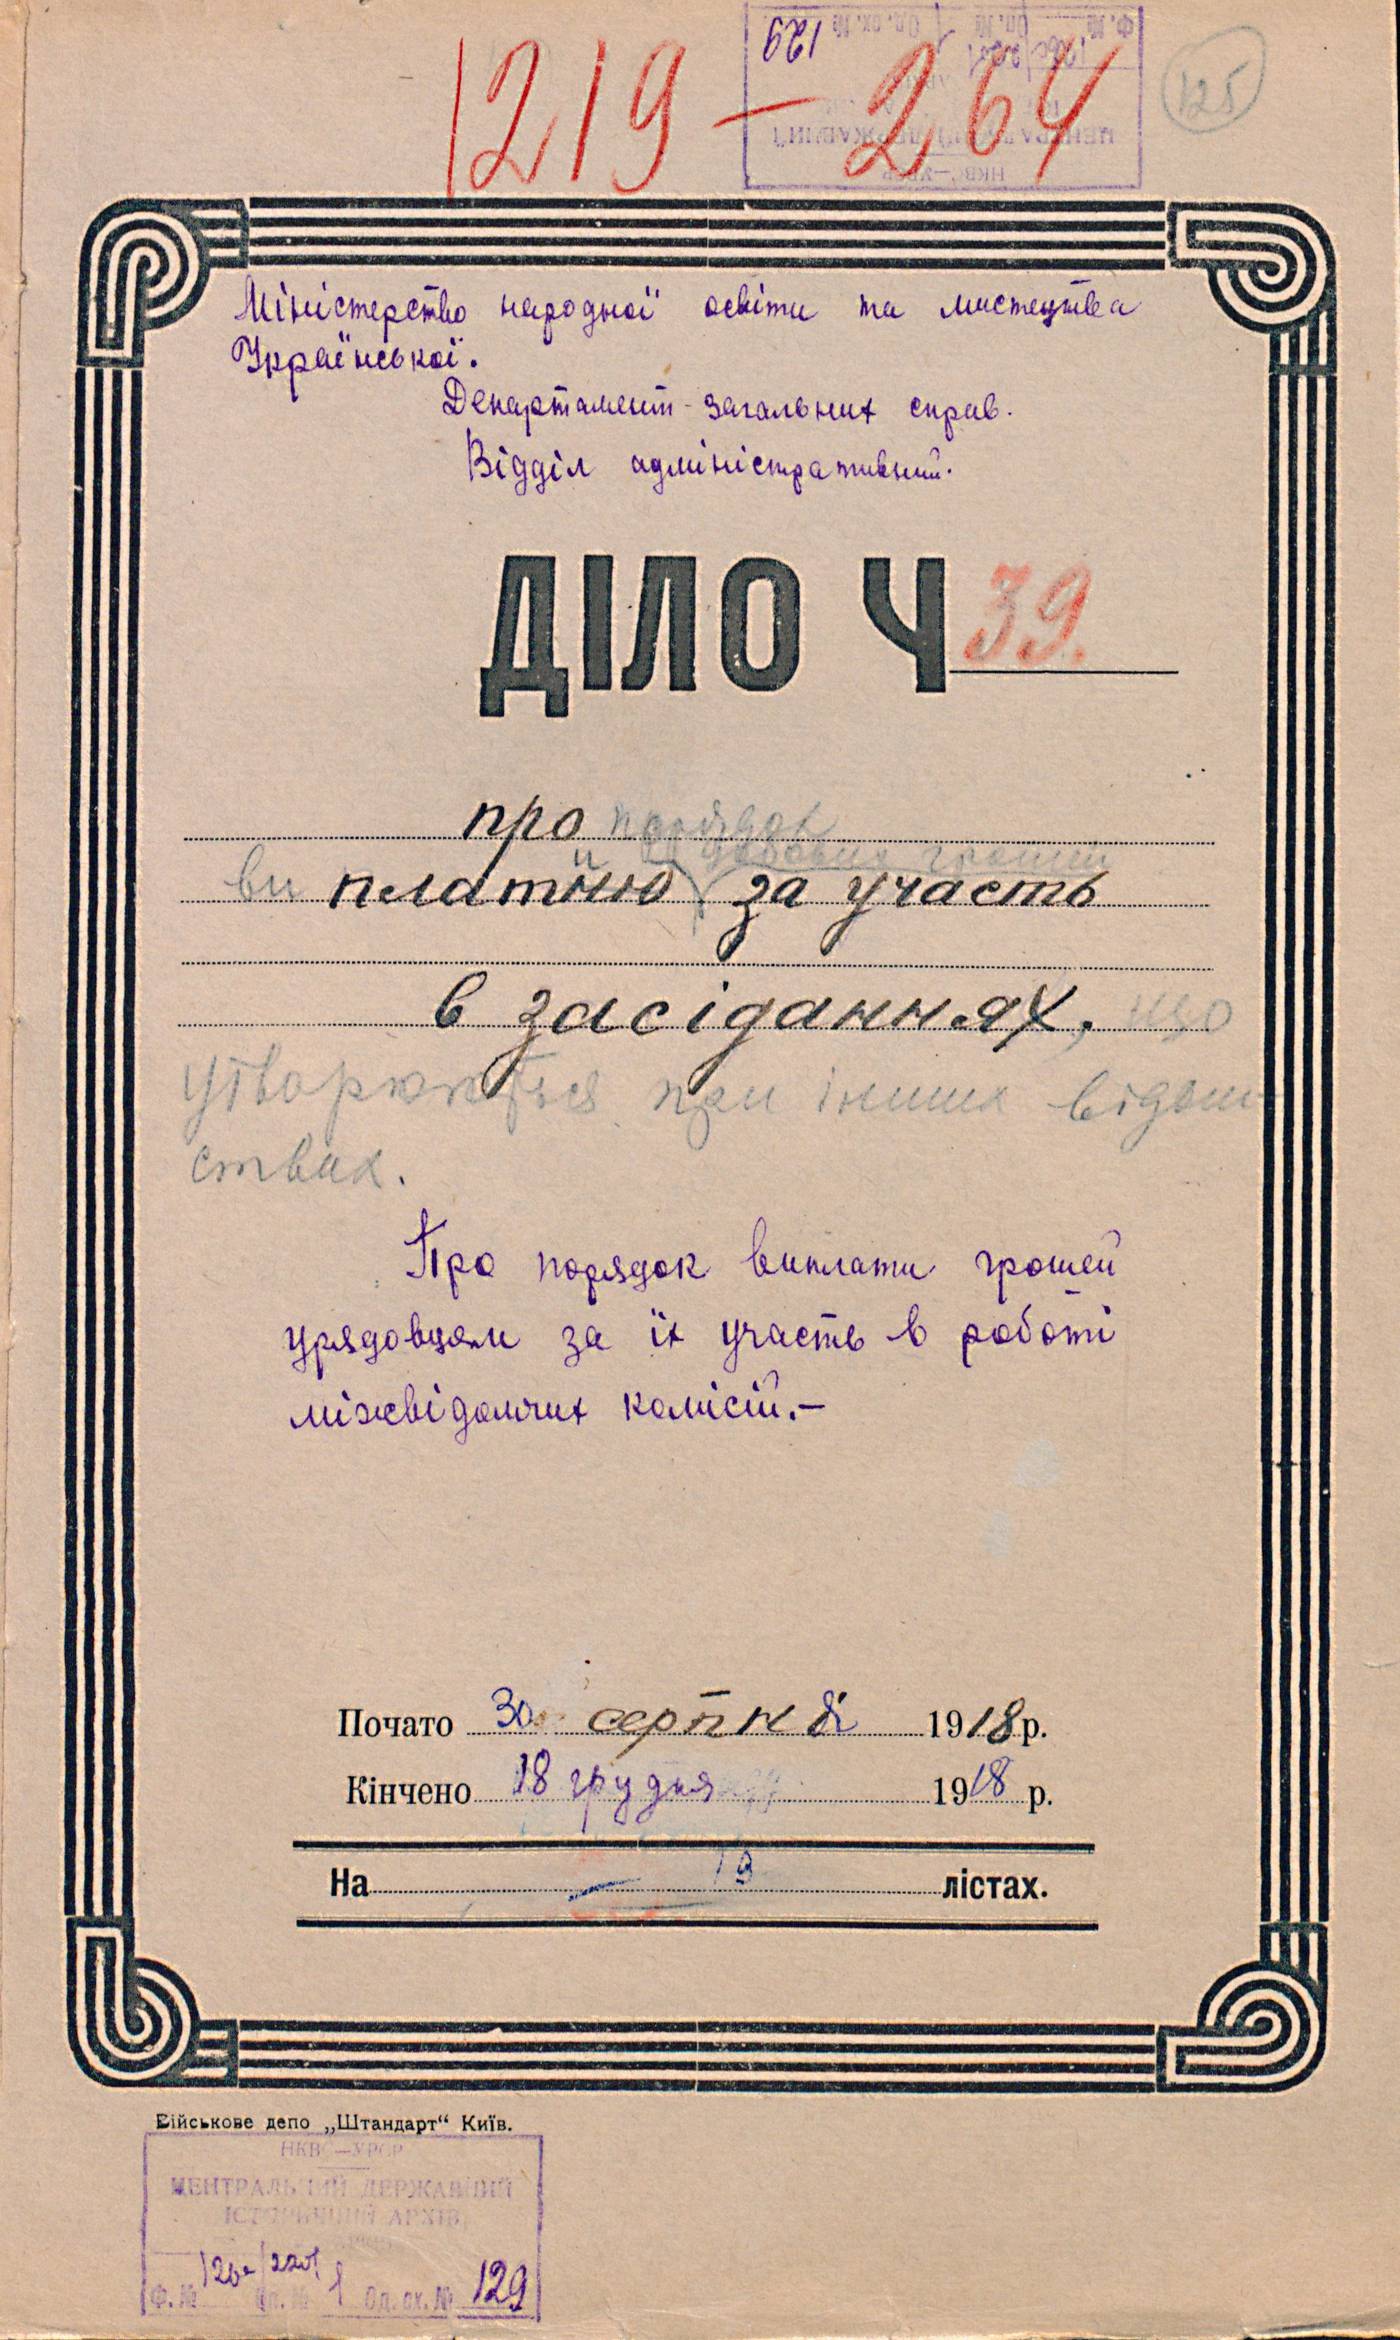 1219 – 264
125
129
НКВС–УРСР
Міністерство народної освіти та мистецтва
Української.
Департамент загальних справ.
Відділ адміністративний.
ДІЛО Ч 39.
про порядок
ви платни за участь
в засіданнях, що
утворюються при інших відом-
ствах.
Про порядок виплати грошей
урядовцям за їх участь в роботі
міжвідомчих комісій.–
Почато 30 серпня 1918 р.
Кінчено 18 грудня 1918 р.
На 19 лістах.
Військове депо „Штандарт“ Київ.
НКВС–УРСР
ЦЕНТРАЛЬНИЙ ДЕРЖАВНИЙ
ІСТОРИЧНИЙ АРХІВ
Ф. № Оп. № 1 Од. сх. № 129